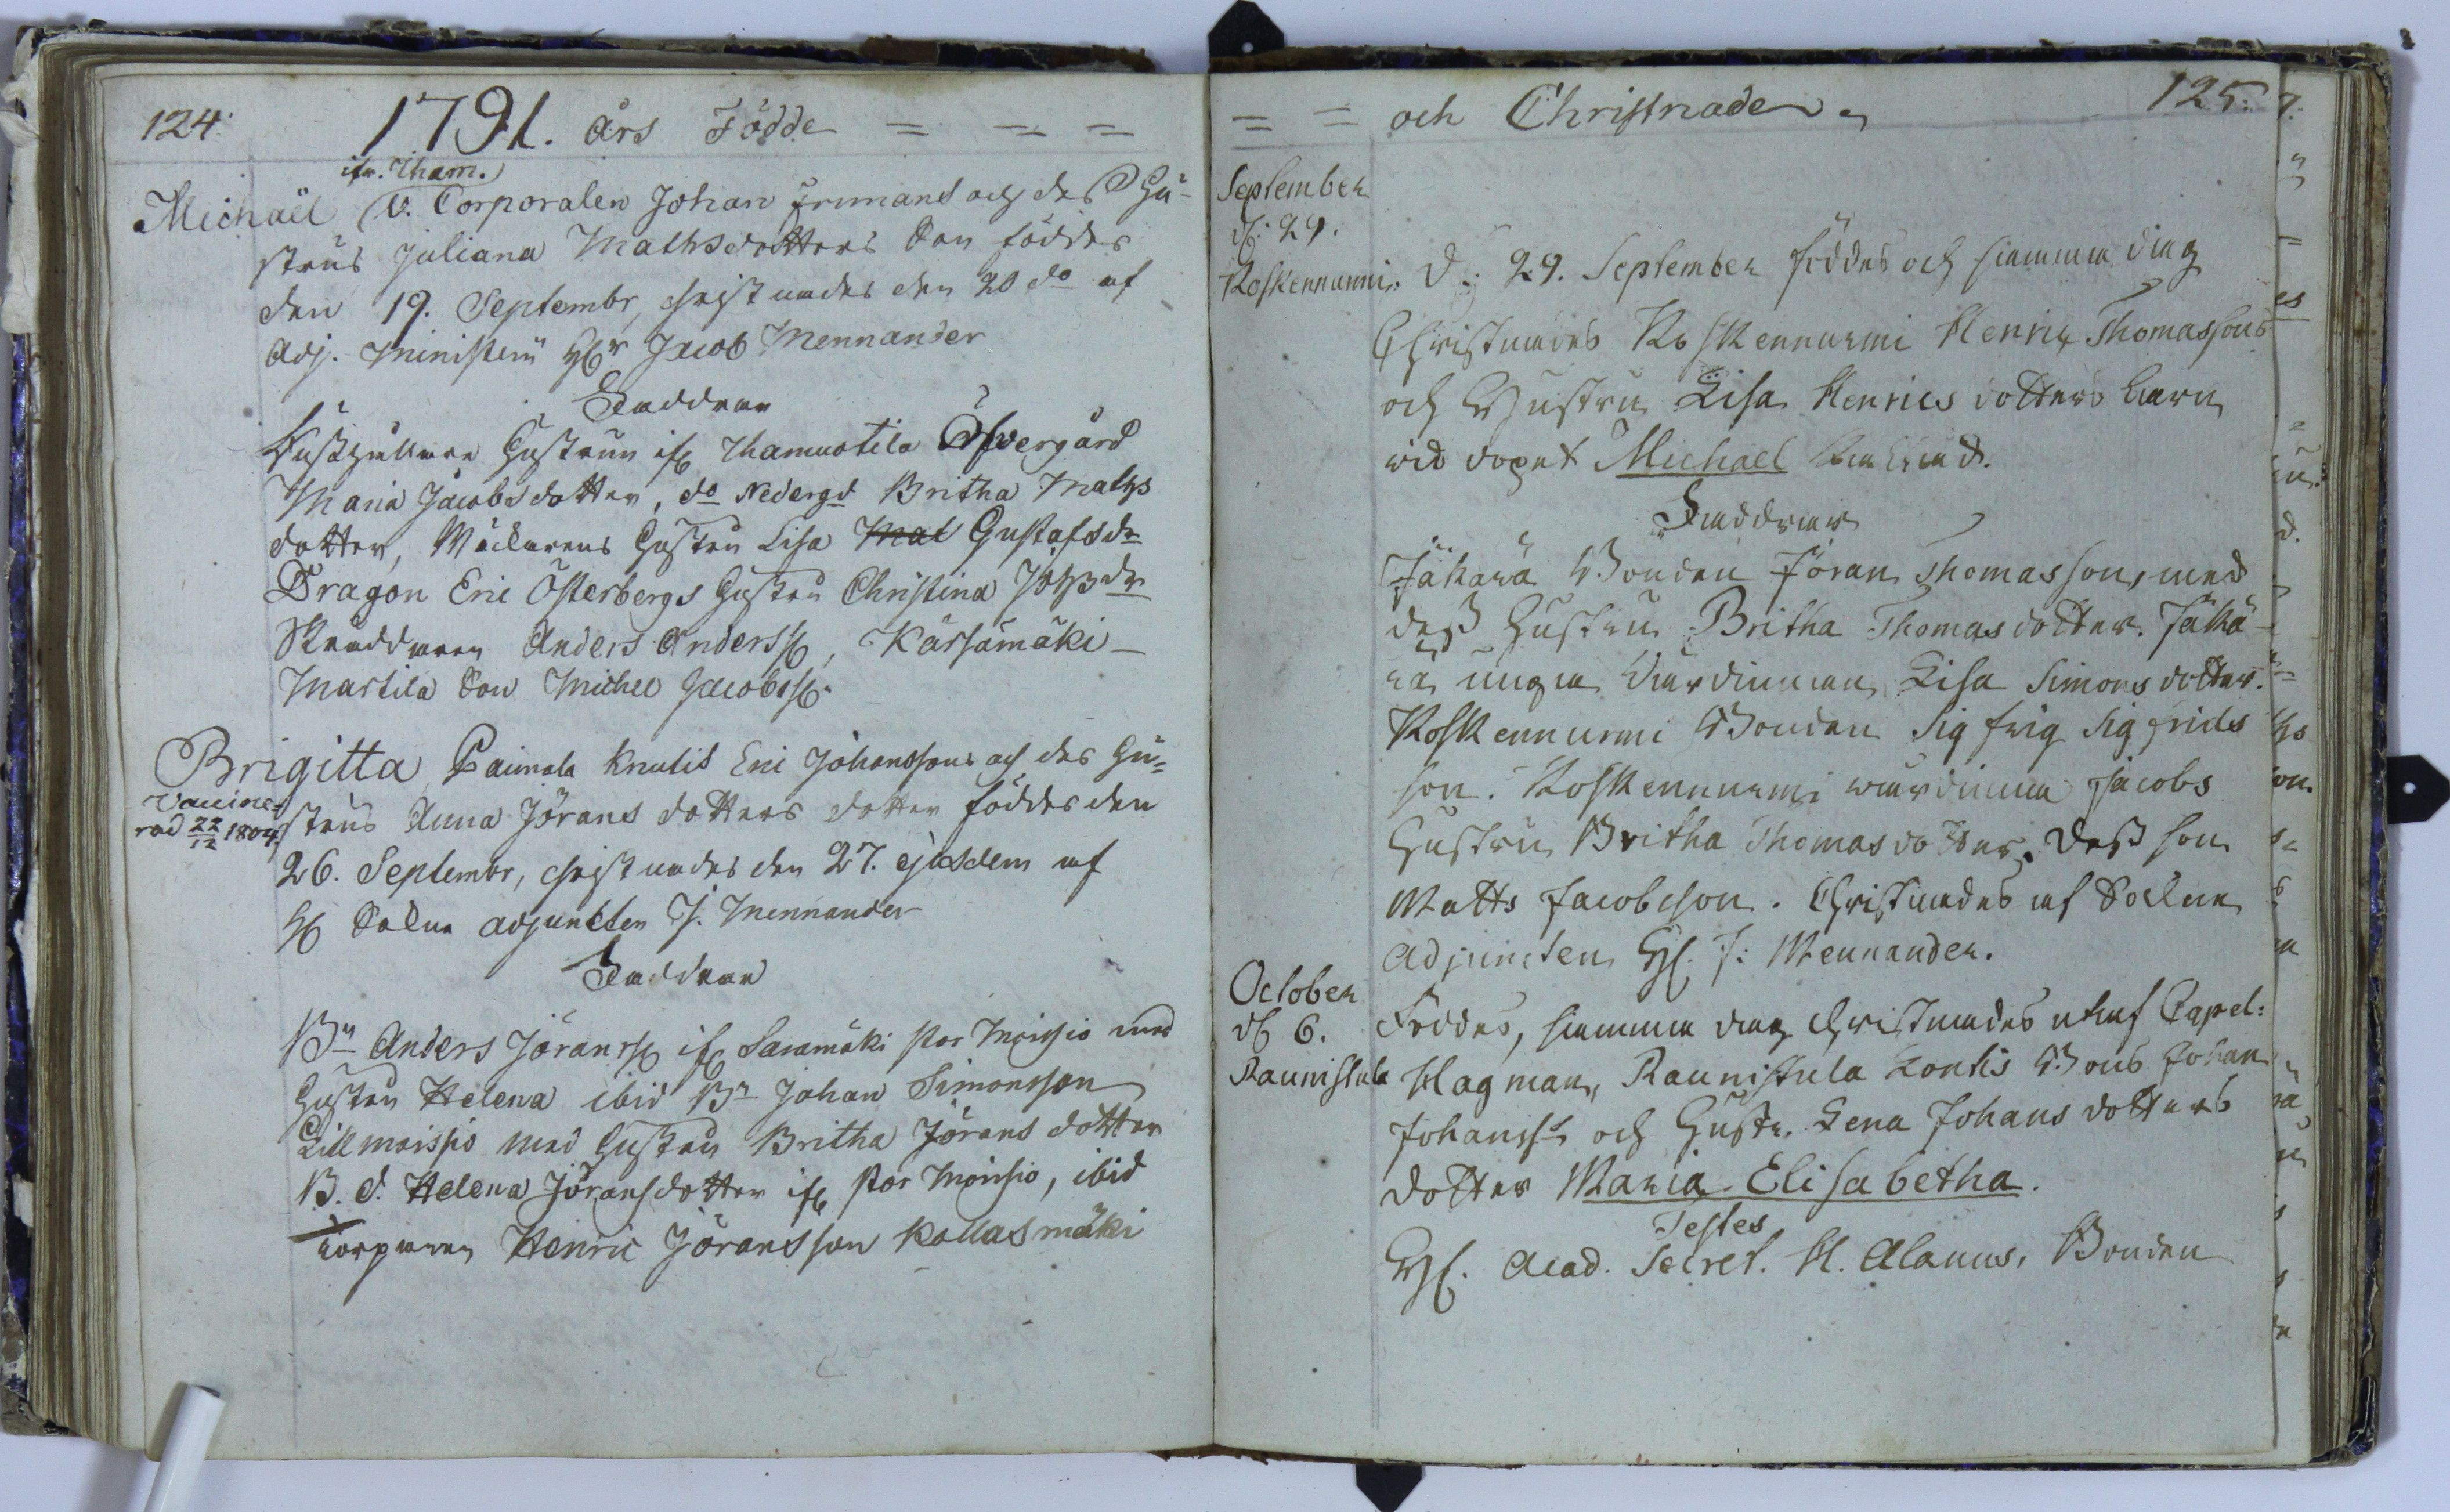 124.
1791. års Födde = = =
ifr. Tham.
Michaël v. Corporalen Johan Frimans och des Hu-
strus Juliana Mathsdotters Son föddes
den 19. Septembr, christnades den 20 do af
Adj. Ministerii Hr Jacob Mennander
Faddrar
Hustrun ifr Thamuotila Öfvergård
Maria Jacobsdotter, do Nedergd Britha Maths
dotter, Hustru Lisa Mat Gustafsdr
Dragon Eric Österbergs Hustru Christina Johsdr
Skräddaren Anders Anderss., Kärsämäki
Martila Son Michel Jacobss.
Brigitta Paimala Knutis Eric Johanssons och des Hu=
Vaccine- strus Anna Jörans dotters dotter föddes den
rad 22/12 1804.
26. Septembr, christnades den 27. ejusdem af
Hr Sockne adjuncten J. Mennander
Faddrar
Bn Anders Jöranss. ifr Saramäki stor Moisio med
Hustru Helena ibid Bn Johan Simonsson
Lillmoisio med Hustru Britha Jörans dotter
B. d. Helena Jöransdotter ifr stor Moisio, ibid
Torparen Henric Jöransson Kallasmäki
= = och Christnade 125.
September
d. 29.
Koskennurmi. D. 29. September föddes och samma dag
Christnades Koskennurmi Henric Thomassons
och Hustru Lisa Henrics dotters barn
vid dopet Michael kallad.
Faddrar
Jäkärä Bonden Jöran Thomasson, med
dess Hustru Britha Thomasdotter. Jäkä-
rä unga Värdinnan Lisa Simonsdotter.
Koskennurmi Bonden Sigfrig Sigfrids
son. Koskennurmi wärdinna Jacobs
Hustru Britha Thomasdotter. Dess son
Matts Jacobsson. Christnades af Sockne
Adjuncten H. J: Mennander.
October
d. 6. Föddes, samma dag Christnades utaf Capel:
Raunistula Hagman, Raunistula Kontis Bons Johan
Johanss. och Hustr. Lena Johans dotters
dotter Maria Elisabetha.
Testes
H. Acad. Secret. H. Alanus, Bonden